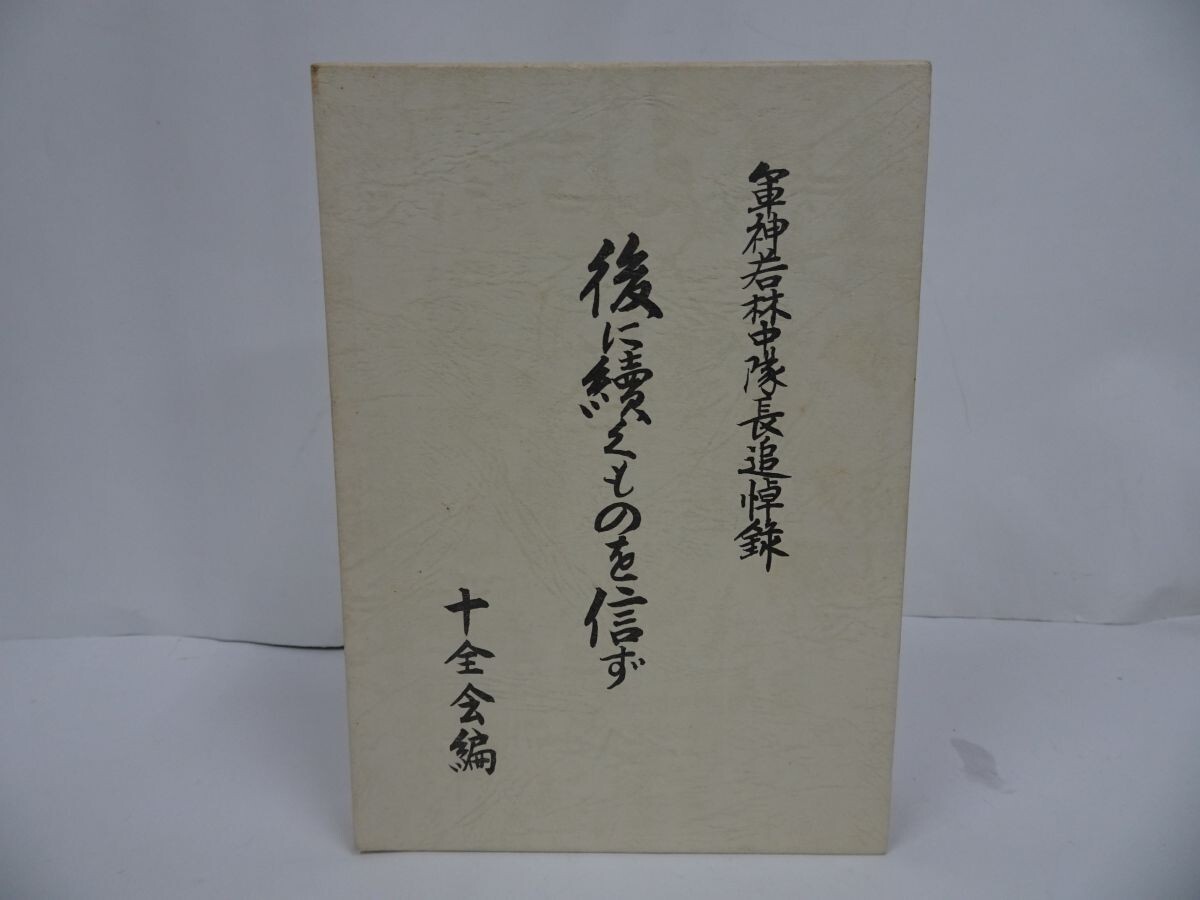 軍神若林中隊長追悼録
後に續くものを信ず
十全会編